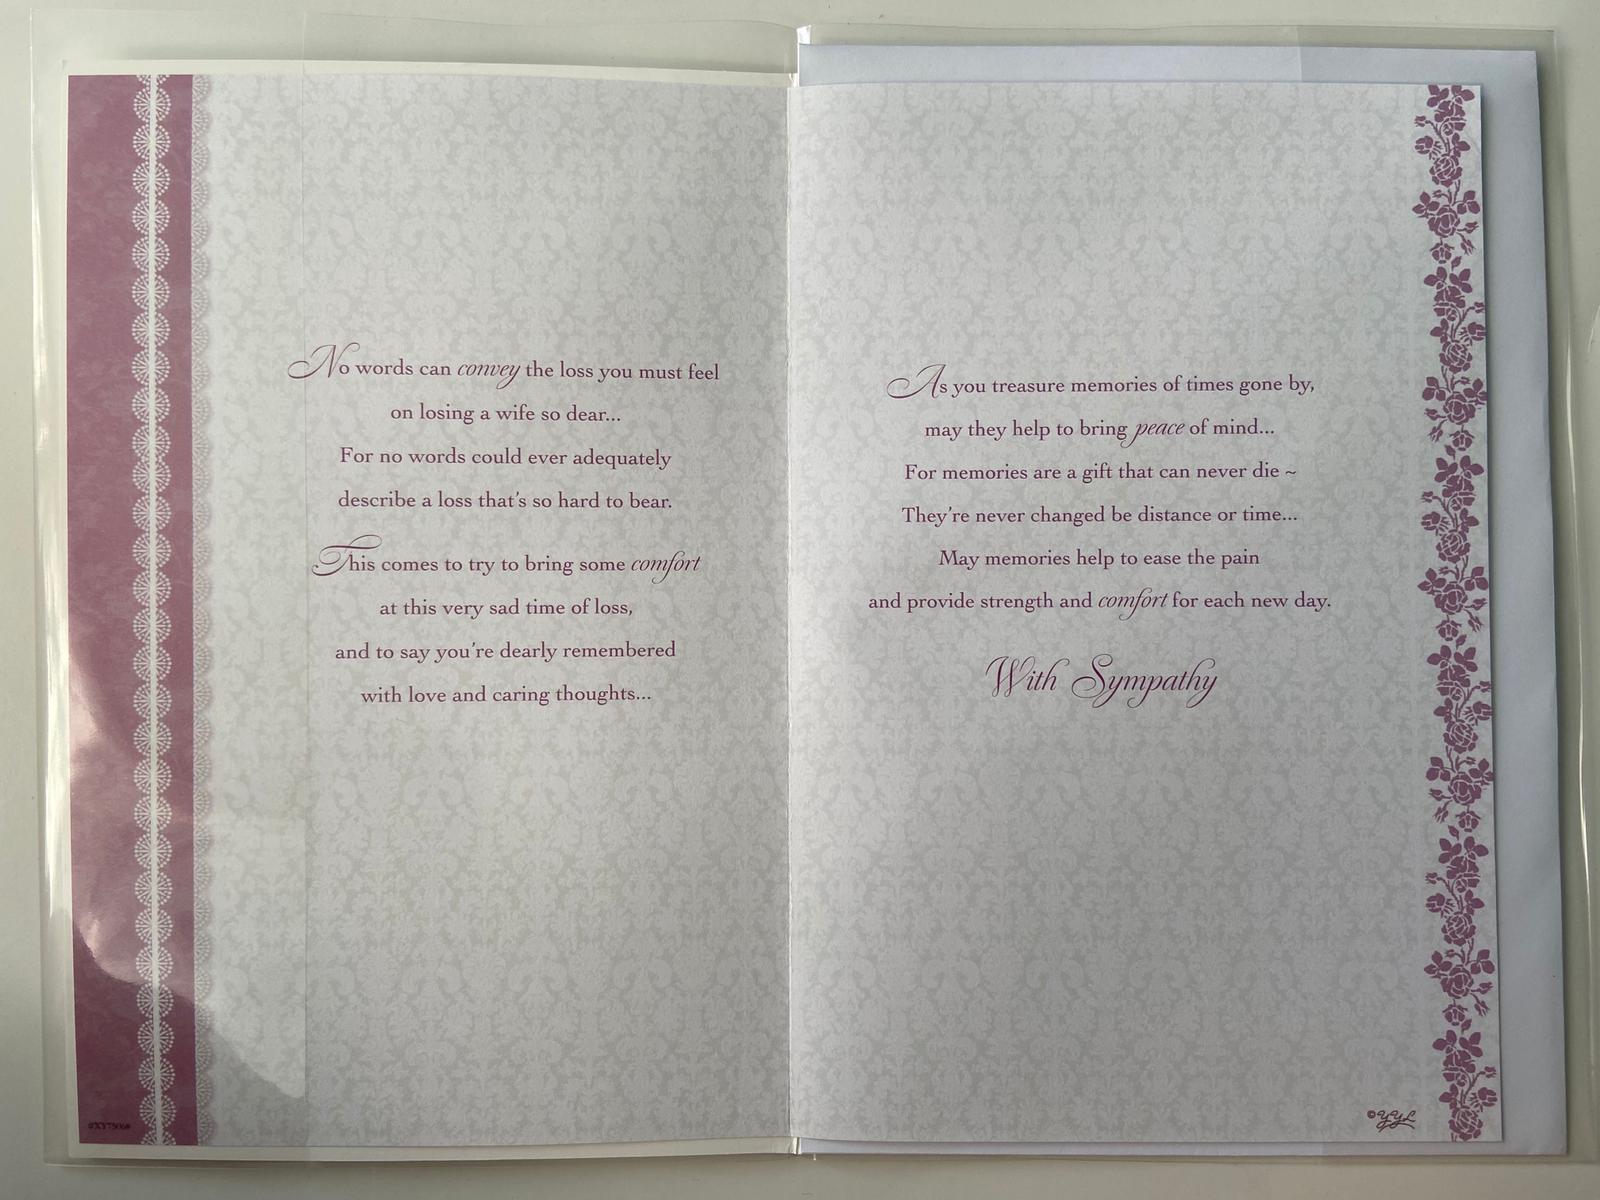 No words can convey the loss you must feel
on losing a wife so dear...
For no words could ever adequately
describe a loss that's so hard to bear.
This comes to try to bring some comfort
at this very sad time of loss,
and to say you're dearly remembered
with love and caring thoughts...
As you treasure memories of times gone by,
may they help to bring peace of mind...
For memories are a gift that can never die ~
They're never changed be distance or time...
May memories help to ease the pain
and provide strength and comfort for each new day.
With Sympathy
©YYL